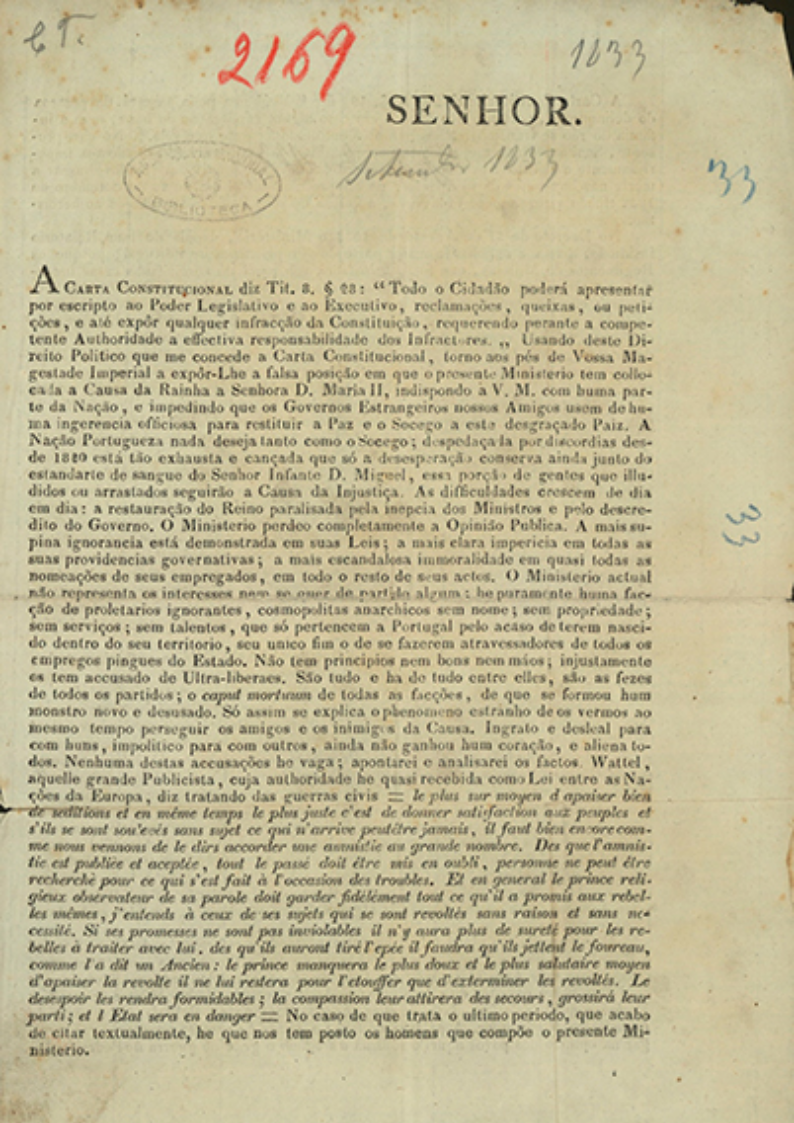 2169
1833
SENHOR.
Setembro 1833
BIBLIOTECA
33
A CARTA CONSTITUCIONAL diz Tit. 8. § 28: “Todo o Cidadão poderá apresentar
por escripto ao Poder Legislativo e ao Executivo, reclamações, queixas, ou peti-
ções, e até expôr qualquer infracção da Constituição, requerendo perante a compe-
tente Authoridade a effectiva responsabilidade dos Infractores. „ Usando deste Di-
reito Politico que me concede a Carta Constitucional, torno aos pés de Vossa Ma-
gestade Imperial a expôr-Lhe a falsa posição em que o presente Ministerio tem collo-
cada a Causa da Rainha a Senhora D. Maria II, indispondo a V. M. com huma par-
te da Nação, e impedindo que os Governos Estrangeiros nossos Amigos usem de hu-
ma ingerencia officiosa para restituir a Paz e o Socego a este desgraçado Paiz. A
Nação Portugueza nada deseja tanto como o Socego; despedaçada por discordias des-
de 1820 está tão exhausta e cançada que só a desesperação conserva ainda junto do
estandarte de sangue do Senhor Infante D. Miguel, essa porção de gentes que illu-
didos ou arrastados seguirão a Causa da Injustiça. As difficuldades crescem de dia
em dia: a restauração do Reino paralisada pela inepcia dos Ministros e pelo descre-
dito do Governo. O Ministerio perdeo completamente a Opinião Publica. A mais su-
pina ignorancia está demonstrada em suas Leis; a mais clara impericia em todas as
suas providencias governativas; a mais escandalosa immoralidade em quasi todas as
nomeações de seus empregados, em todo o resto de seus actos. O Ministerio actual
não representa os interesses nem se quer de partido algum: he puramente huma fac-
ção de proletarios ignorantes, cosmopolitas anarchicos sem nome; sem propriedade;
sem serviços; sem talentos, que só pertencem a Portugal pelo acaso de terem nasci-
do dentro do seu territorio, seu unico fim o de se fazerem atravessadores de todos os
empregos pingues do Estado. Não tem principios nem bons nem máos; injustamente
os tem accusado de Ultra-liberaes. São tudo e ha de tudo entre elles, são as fezes
de todos os partidos; o caput mortuum de todas as facções, de que se formou hum
monstro novo e desusado. Só assim se explica o phenomeno estranho de os vermos ao
mesmo tempo perseguir os amigos e os inimigos da Causa. Ingrato e desleal para
com huns, impolitico para com outros, ainda não ganhou hum coração, e aliena to-
dos. Nenhuma destas accusações he vaga; apontarei e analisarei os factos. Wattel,
aquelle grande Publicista, cuja authoridade he quasi recebida como Lei entre as Na-
ções da Europa, diz tratando das guerras civis = le plus sur moyen d'apaiser bien
de seditions et en même temps le plus juste c'est de donner satisfaction aux peuples et
s'ils se sont soulevés sans sujet ce qui n'arrive peutêtre jamais, il faut bien encore com-
me nous vennons de le dirs accorder une amnistie au grande nombre. Des que l'amnis-
tie est publiée et aceptée, tout le passé doit être mis en oubli, personne ne peut être
recherché pour ce qui s'est fait à l'occasion des troubles. Et en general le prince reli-
gieux observateur de sa parole doit garder fidélément tout ce qu'il a promis aux rebel-
les mêmes, j'entends à ceux de ses sujets qui se sont revoltés sans raison et sans ne-
cessité. Si ses promesses ne sont pas inviolables il n'y aura plus de sureté pour les re-
belles à traiter avec lui, des qu'ils auront tiré l'epée il faudra qu'ils jettent le foureau,
comme l'a dit un Ancien: le prince manquera le plus doux et le plus salutaire moyen
d'apaiser la revolte il ne lui restera pour l'etouffer que d'exterminer les revoltés. Le
desespoir les rendra formidables; la compassion leur attirera des secours, grossirá leur
parti; et l Etat sera en danger = No caso de que trata o ultimo periodo, que acabo
de citar textualmente, he que nos tem posto os homens que compõe o presente Mi-
nisterio.
33